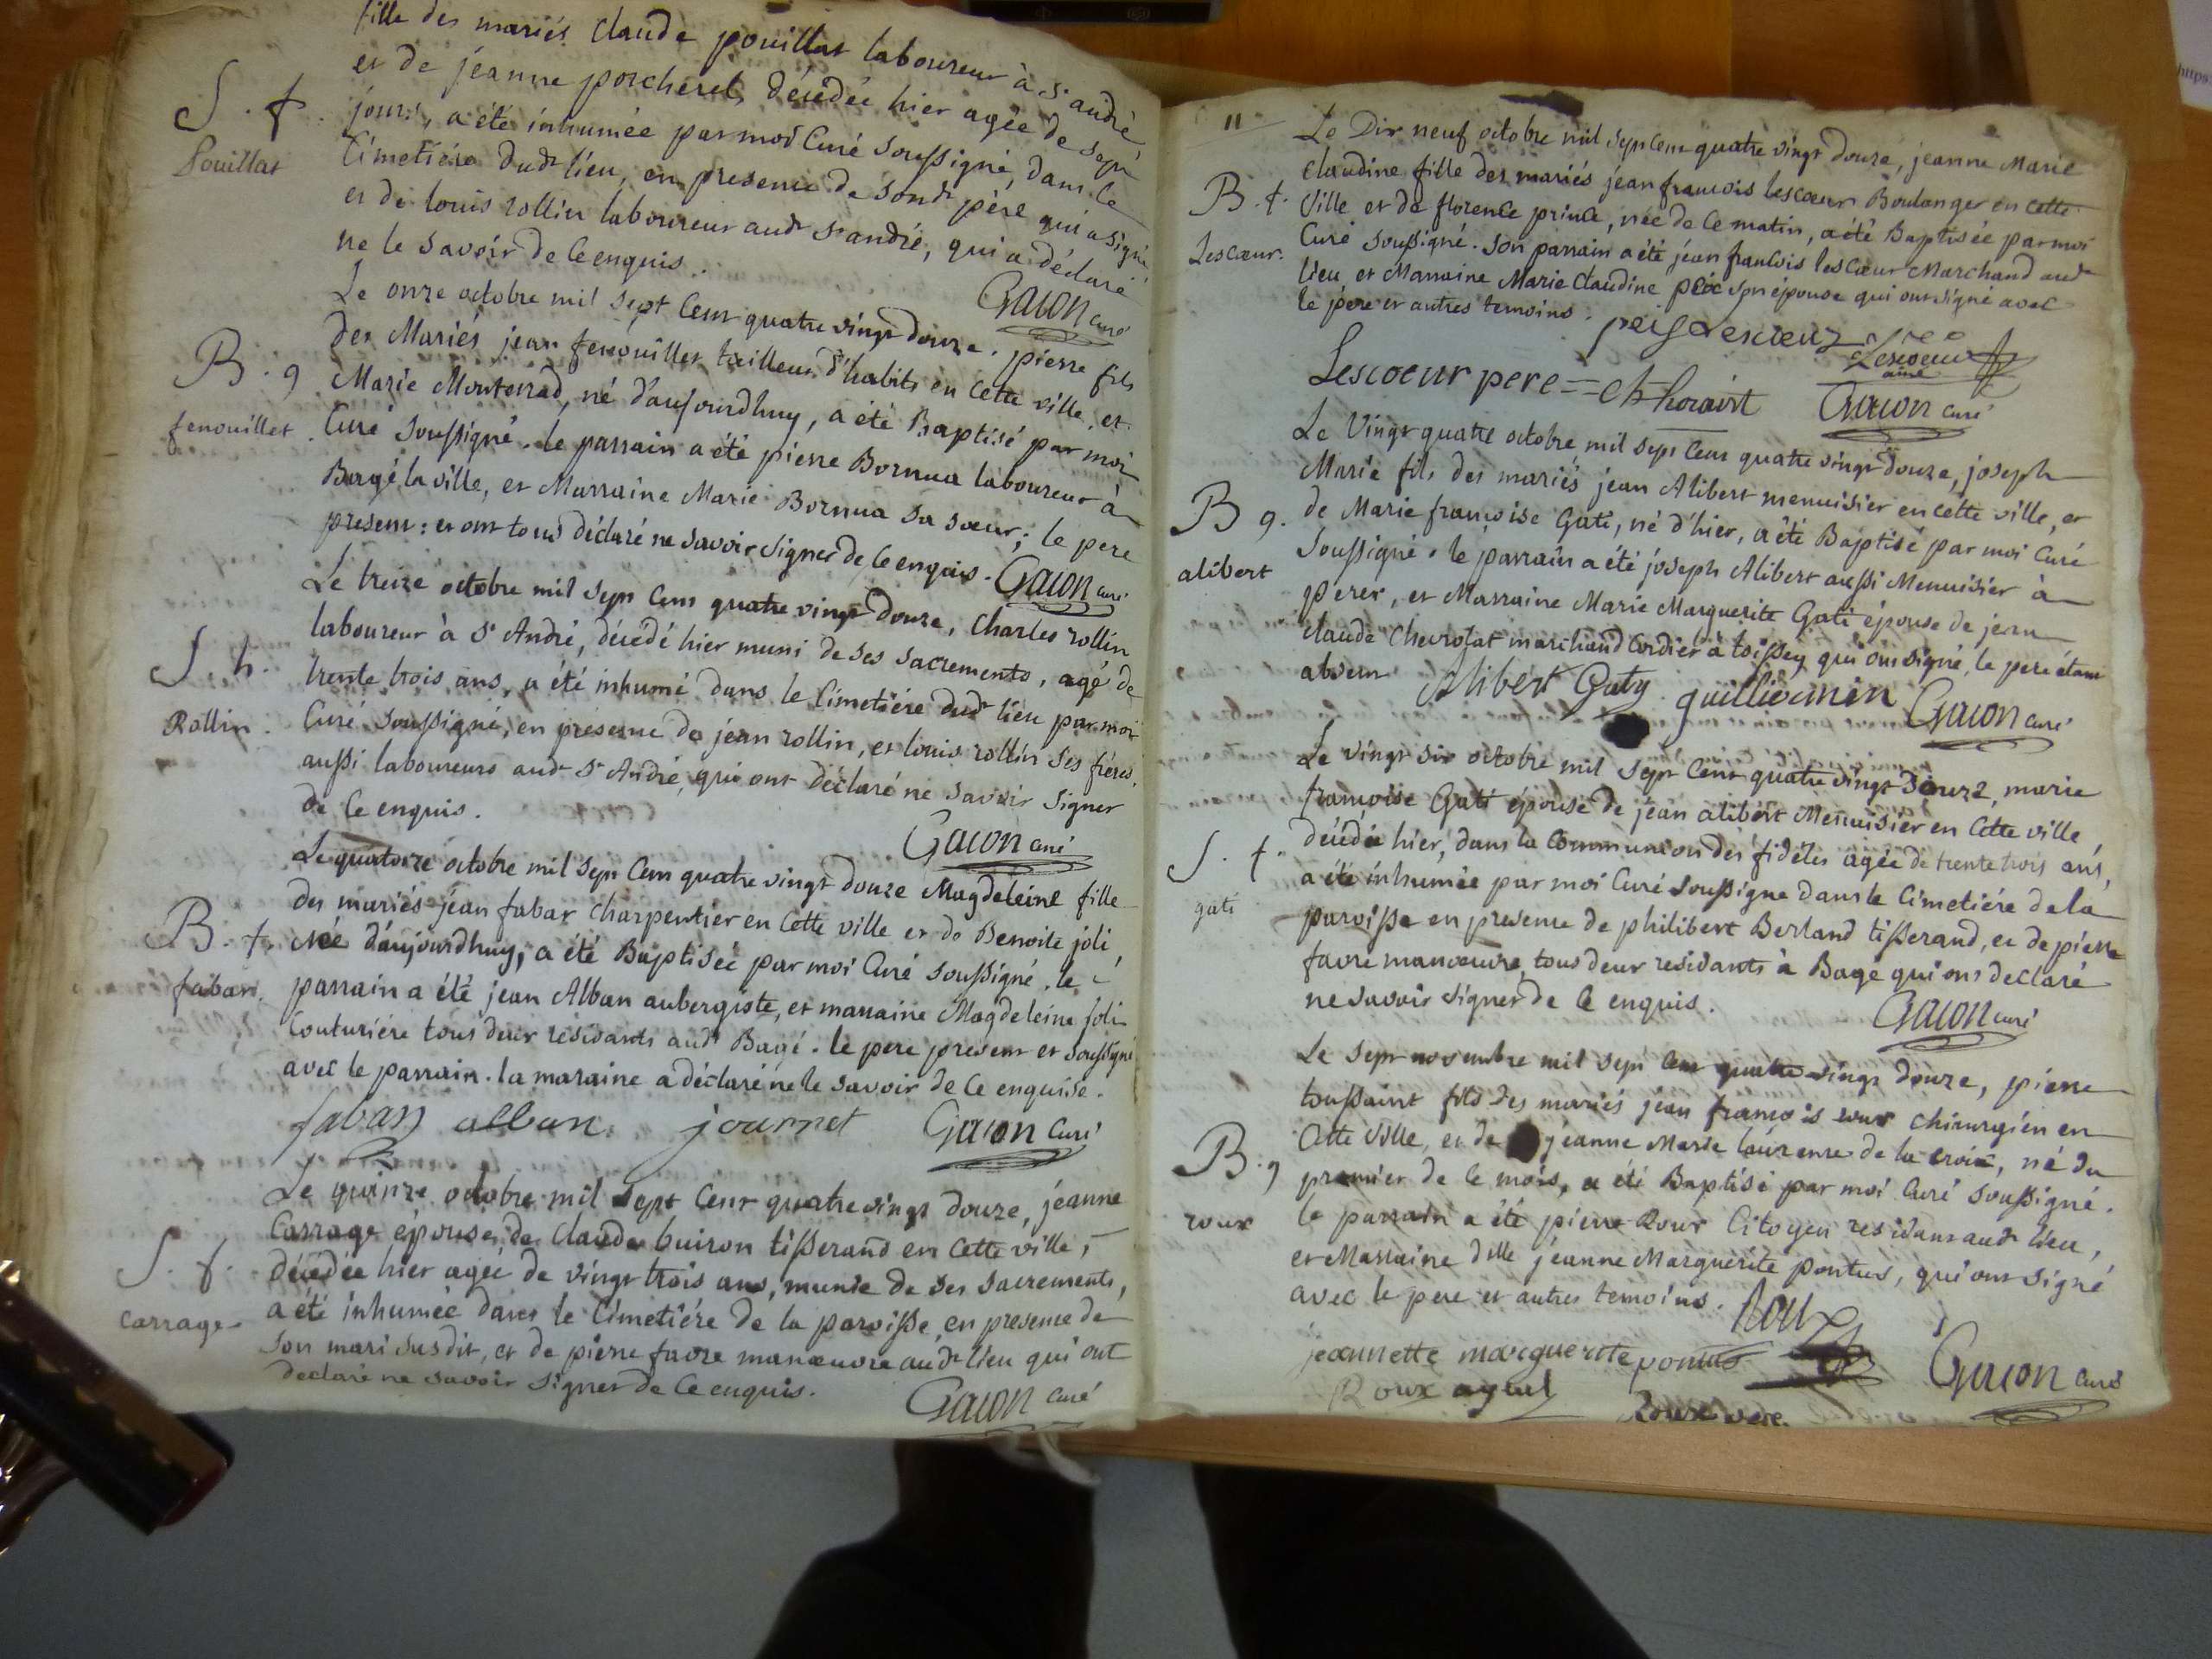 fille des mariés Claude pouillat laboureur à St andré
et de jeanne porcheret, décédée hier agée de sept
jours, a été inhumée par moi Curé soussigné, dans le
Cimetiére dudt lieu, en presence de sondt pére qui a signé
et de louis rollin laboureur audt St andré, qui a déclaré
ne le savoir de ce enquis.
S. f.
Pouillat
Gacon curé
Le onze octobre mil sept cent quatre vingt douze. pierre fils
des Mariés jean fenouillet tailleur d'habits en cette ville, et
Marie Monterrad, né d'aujourdhuy, a été Baptisé par moi
Curé soussigné. le parrain a été pierre Bornua laboureur à
Bagé la ville, et Marraine Marie Bornua sa sœur; le pere
present: et ont tous déclaré ne savoir signer de ce enquis. Gacon curé
B. g
fenouillet
Le treize octobre mil sept cent quatre vingt douze, Charles rollin
laboureur à St André, décédé hier muni de ses sacrements, agé de
trente trois ans, a été inhumé dans le Cimetiére dudt lieu par moi
Curé soussigné, en présence de jean rollin, et louis rollin ses fréres,
aussi laboureurs audt St André, qui ont déclaré ne savoir signer
de ce enquis.
S. h.
Rollin.
Gacon curé
Le quatorze octobre mil sept cent quatre vingt douze Magdeleine fille
des mariés jean fabar Charpentier en cette ville et de Benoite joli,
Née d'aujourdhuy, a été Baptisée par moi Curé soussigné. le
parrain a été jean Alban aubergiste, et marraine Magdeleine joli
Couturiére tous deux résidants audt Bagé. le pere present et soussigné
avec le parrain. la maraine a déclaré ne le savoir de ce enquise.
B. f.
fabar.
fabar alban journet Gacon Curé
Le quinze octobre mil sept cent quatre vingt douze, jeanne
Carrage épouse de Claude buiron tisserand en cette ville,
décédée hier agée de vingt trois ans, munie de ses sacrements,
a été inhumée dans le Cimetiére de la paroisse, en presence de
son mari susdit, et de piérre favre manœuvre audt lieu qui ont
declaré ne savoir signer de ce enquis.
S. f.
Carrage
Gacon curé
11
Le Dix neuf octobre mil sept cent quatre vingt douze, jeanne Marie
Claudine fille des mariés jean francois lescœur Boulanger en cette
Ville et de florence prince, née de ce matin, a été Baptisée par moi
Curé soussigné. son parrain a été jean francois lescœur Marchand audt
lieu et Marraine Marie Claudine son épouse qui ont signé avec
le pere et autres temoins.
B. f.
Lescœur.
Lescoeur
ainé
Lescoeur pere Gacon curé
Le Vingt quatre octobre mil sept cent quatre vingt douze, joseph
Marie fils des mariés jean Alibert menuisier en cette ville, et
de Marie françoise Gati, né d'hier, a été Baptisé par moi Curé
soussigné. le parrain a été joseph Alibert aussi Menuisier à
perex, et Marraine Marie Marguerite Gati épouse de jean
claude Chevrolat marchand Cordier à toissey qui ont signé, le pere étant
absent
B g.
alibert
Alibert Gaty guilliermin Gacon curé
Le vingt six octobre mil sept cent quatre vingt douze, marie
françoise Gati épouse de jean alibert Menuisier en cette ville
décédée hier, dans la Communion des fidéles agée de trente trois ans,
a été inhumée par moi Curé soussigné dans le Cimetiére de la
paroisse en presence de philibert Berland tisserand, et de piérre
favre manœuvre, tous deux residants à Bagé qui ont declaré
ne savoir signer de ce enquis.
S. f.
gati
Gacon curé
Le sept novembre mil sept cent quatre vingt douze, pierre
toussaint fils des mariés jean francois roux chirurgién en
Cette Ville, et de jeanne Marie laurence de la croix, né du
premier de ce mois, a été Baptisé par moi Curé soussigné.
le parrain a été pierre Roux Citoyen residant audt lieu,
et Marraine dlle jeanne Marguerite pontus, qui ont signé
avec le pere et autres temoins.
B. g
roux
Roux
jeannette marguerite pontus Gacon curé
Roux ayeul
Roux pere